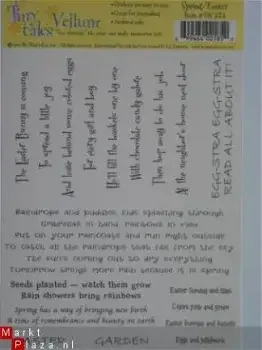 Tiny tales Vellum
Spring/Easter
The Easter Bunny is coming
To spread a little joy
And hide behind some colored eggs
For every girl and boy
He'll fill the baskets one by one
With chocolate candy galore
Then hop away to do his job
At the neighbor's house next door
EGG-STRA EGG-STRA
READ ALL ABOUT IT!
Raindrops and puddles kids splashing through
Umbrella in hand, rainbows in view
Put on your raincoats and run right outside
To catch all the raindrops that fall from the sky
The sun's coming out to dry everything
Tomorrow brings more rain because it is spring
Seeds planted — watch them grow
Rain showers bring rainbows
Spring has a way of bringing new birth
A time of remembrance and beauty on earth
EASTER GARDEN
Easter Sunday and
Easter bonnets and
Eggs and jellybeans
Markt
Plaza.nl